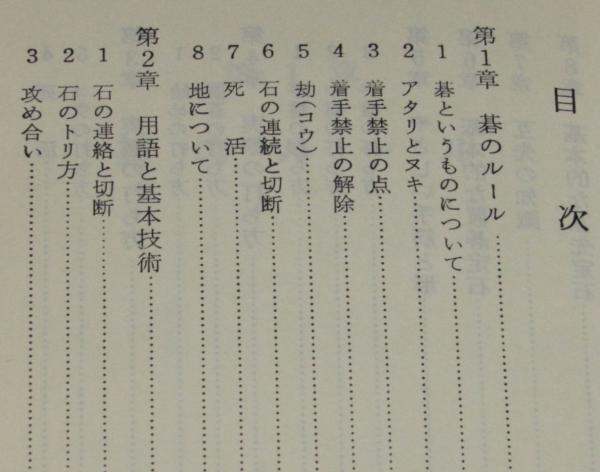 目次
第1章 碁のルール
1 碁というものについて
2 アタリとヌキ
3 着手禁止の点
4 着手禁止の解除
5 劫(コウ)
6 石の連続と切断
7 死活
8 地について
第2章 用語と基本技術
1 石の連絡と切断
2 石のトリ方
3 攻め合い